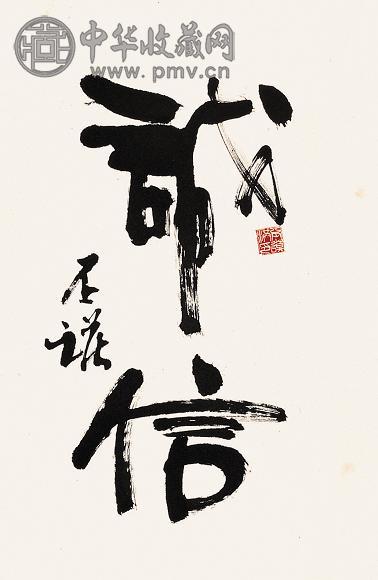 中华收藏网
www.pmv.cn
誠信